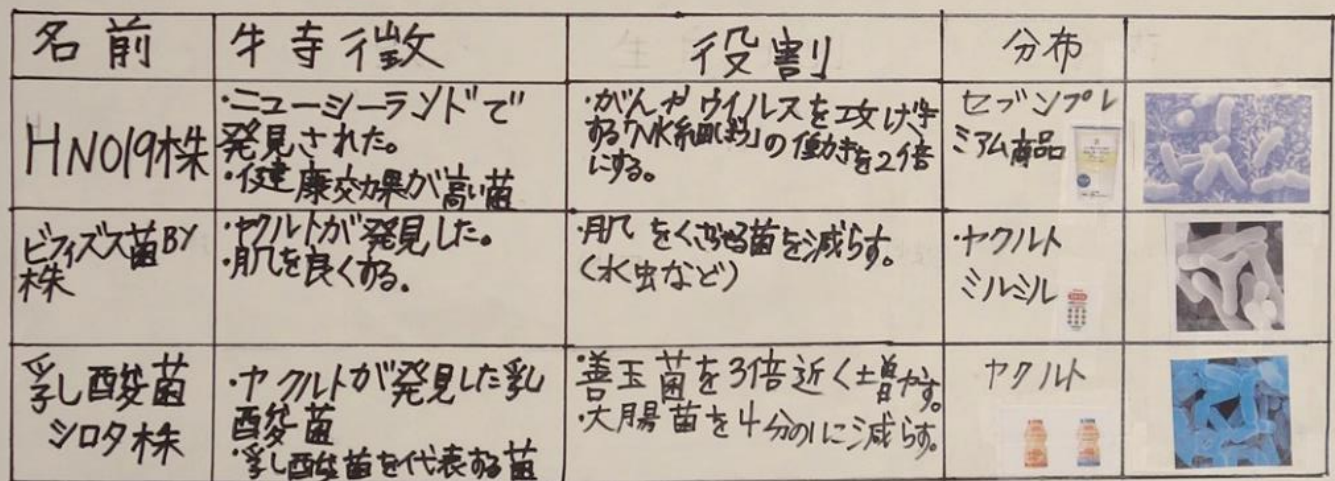 名前
特徴
役割
分布
HN019株
・ニューシーランドで
発見された。
・健康効果が高い菌
・がんやウイルスを攻げき
する「NK細胞」の働きを2倍
にする。
セブンプレ
ミアム商品
ビフィズス菌BY
株
・ヤクルトが発見した。
・肌を良くする。
・肌をくさらせる菌を減らす。
(水虫など)
・ヤクルト
ミルミル
乳酸菌
シロタ株
・ヤクルトが発見した乳
酸菌
・乳酸菌を代表する菌
・善玉菌を3倍近く増やす。
・大腸菌を4分の1に減らす。
ヤクルト